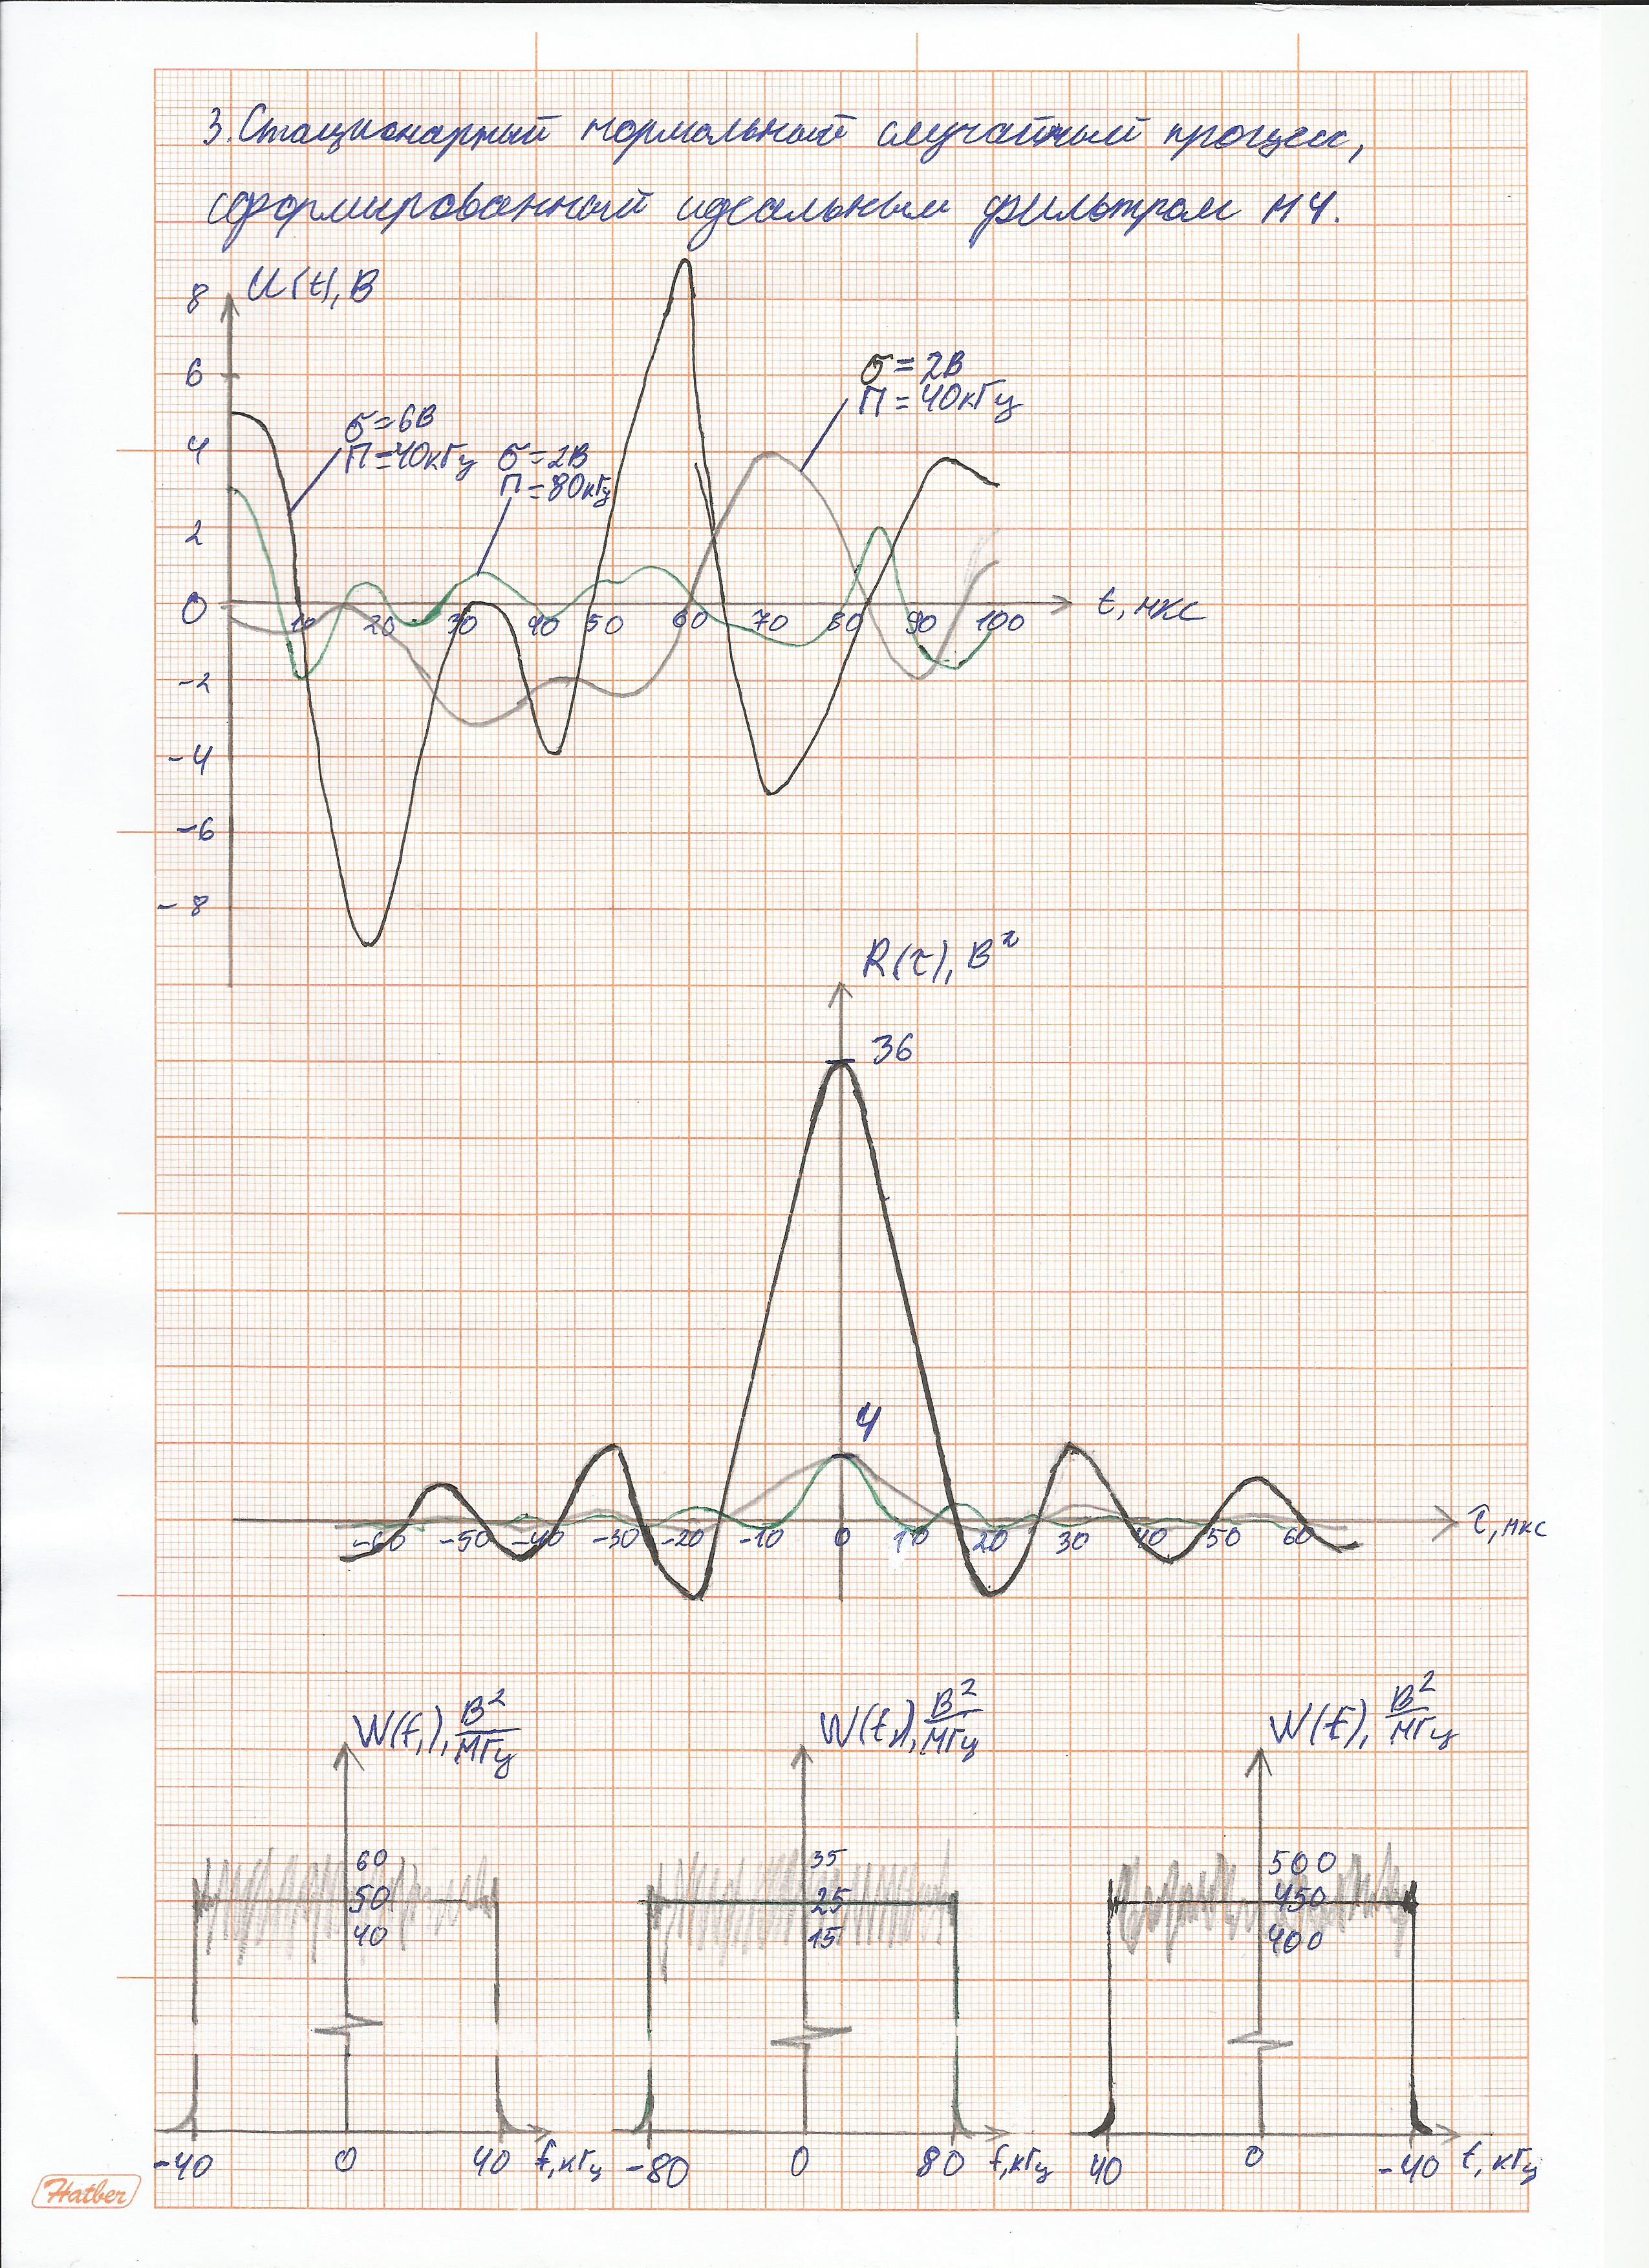 3. Стационарный нормальный случайный процесс,
сформированный идеальным фильтром НЧ.
U(t), В
8
6
4
2
0
-2
-4
-6
-8
σ=6В
П=40кГц
σ=2В
П=80кГц
σ=2В
П=40кГц
10 20 30 40 50 60 70 80 90 100
t, мкс
R(τ), В²
36
4
-60 -50 -40 -30 -20 -10 0 10 20 30 40 50 60
τ, мкс
W(f,), В²/МГц
60
50
40
-40 0 40 f, кГц
W(f,), В²/МГц
35
25
15
-80 0 80 f, кГц
W(f), В²/МГц
500
450
400
40 0 -40 f, кГц
Hatber